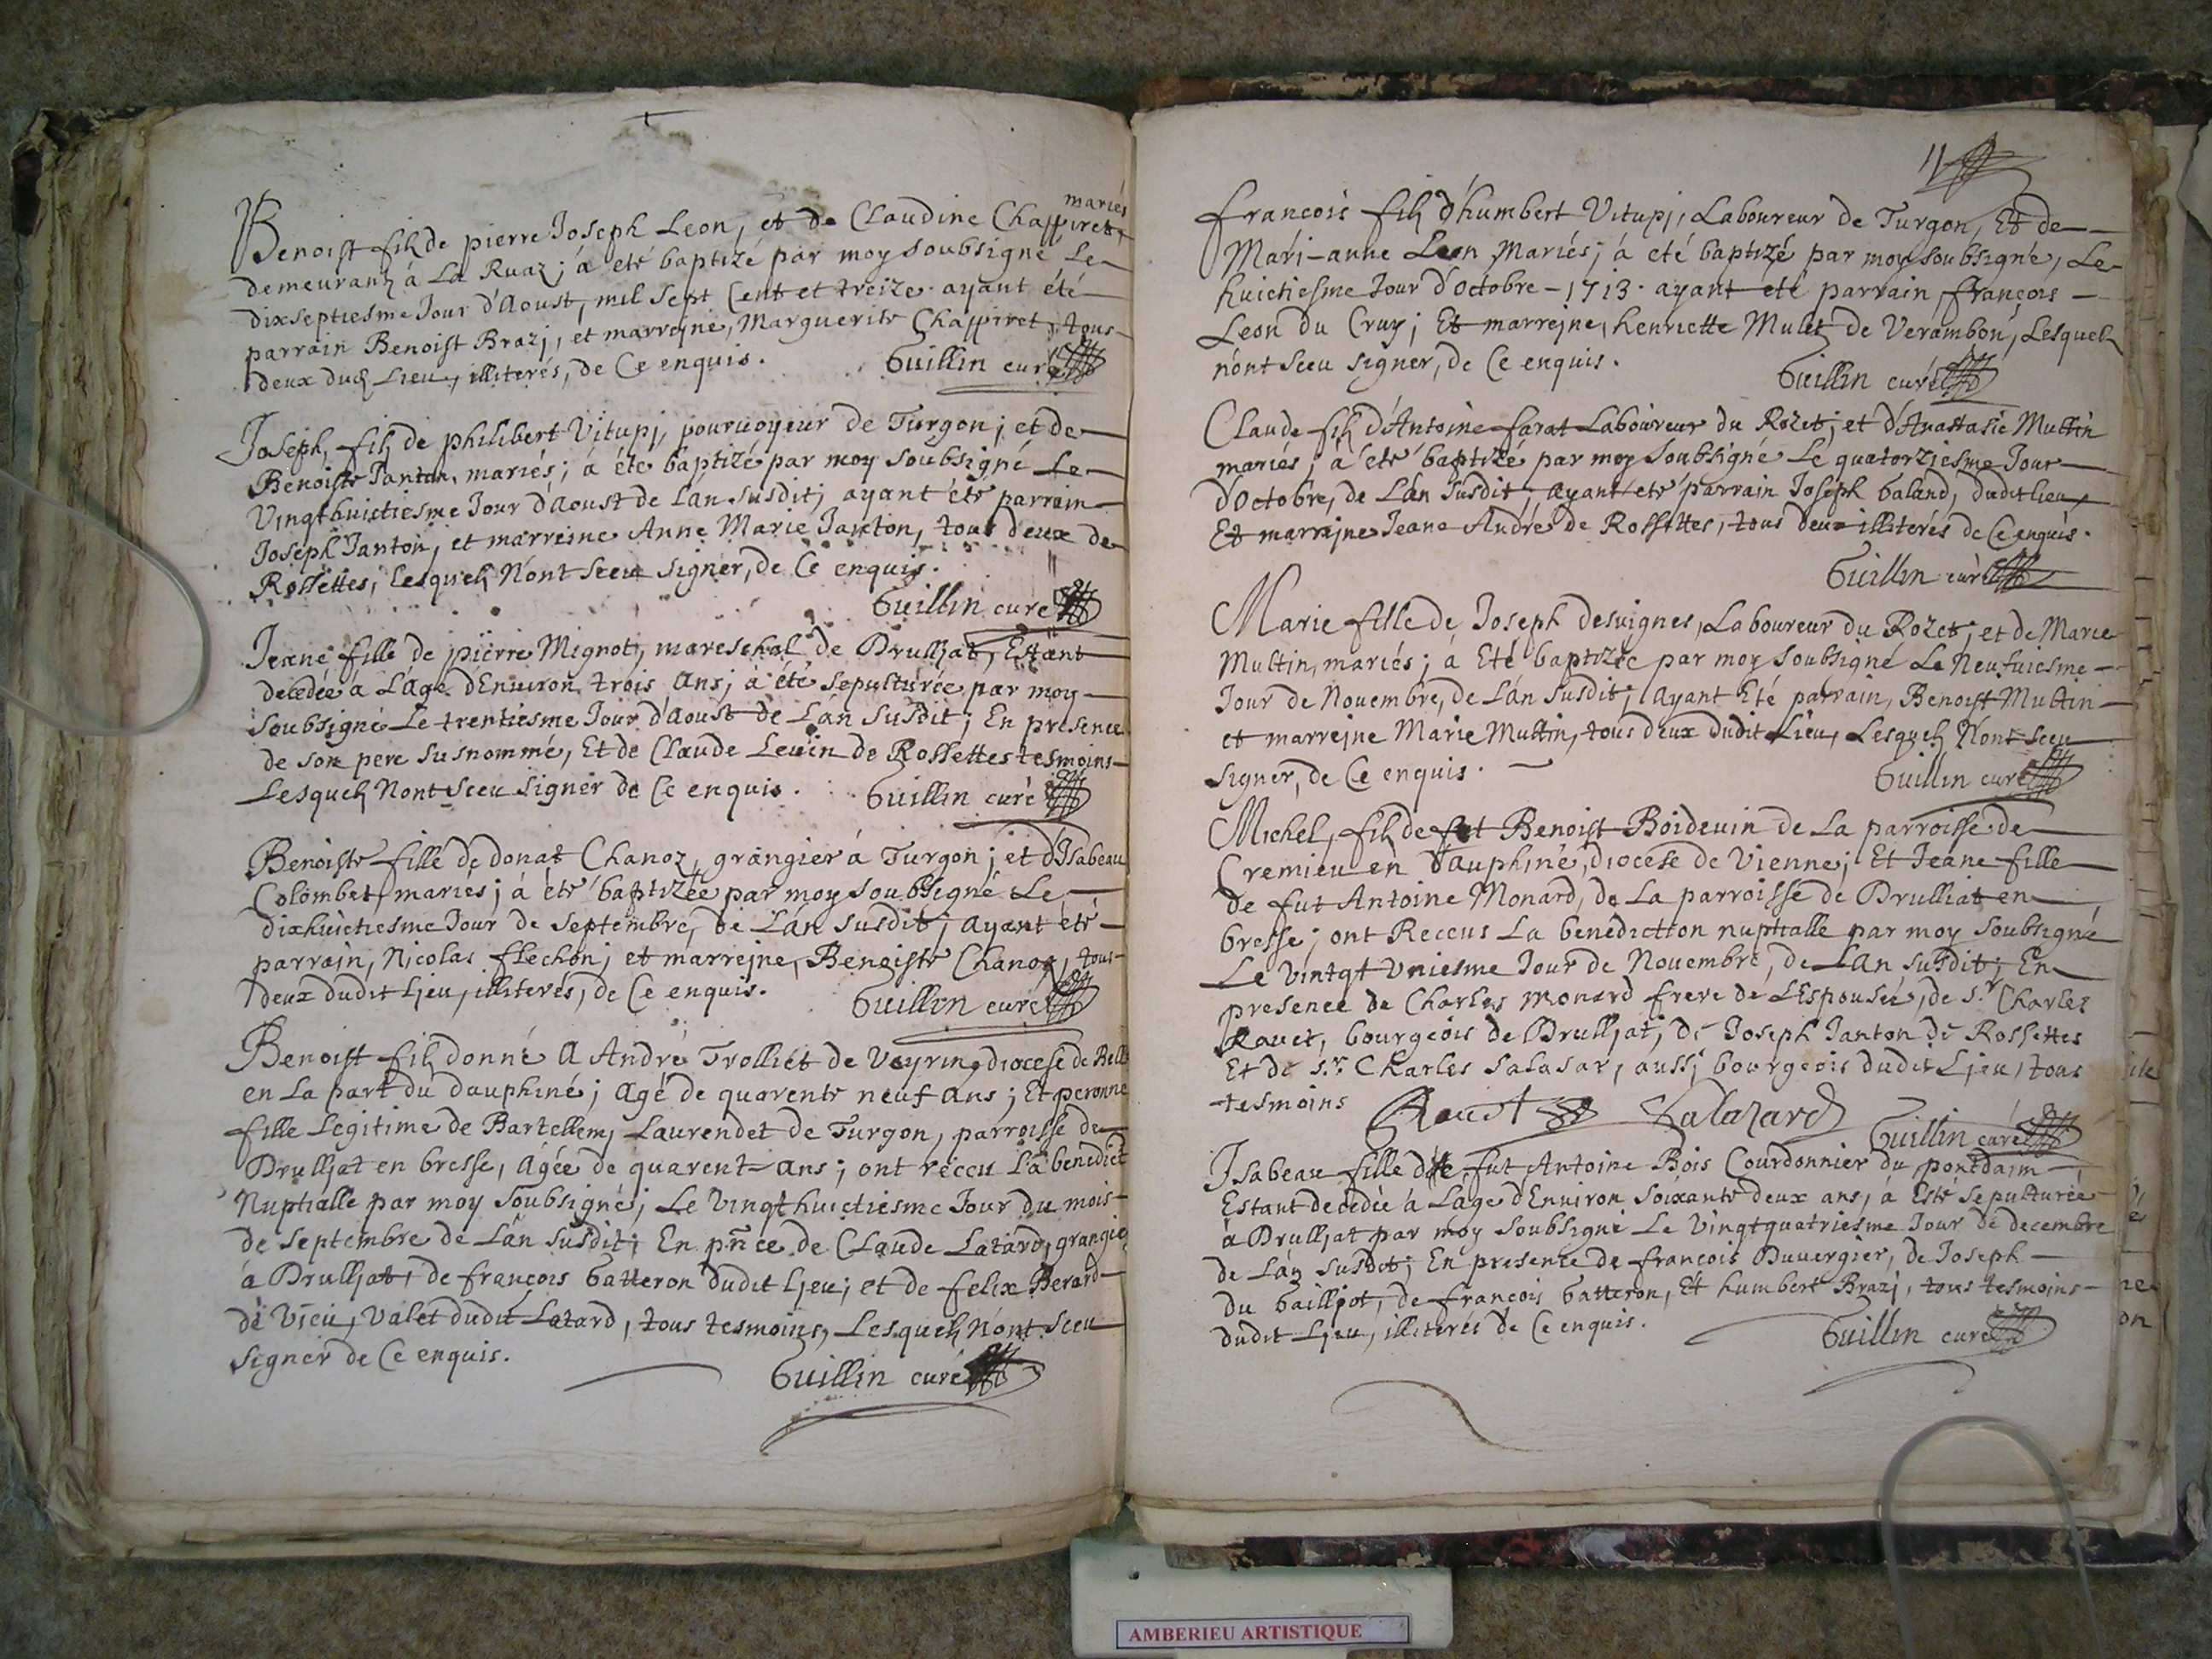 mariés
Benoist fils de pierre Joseph Leon, et de Claudine Chappiret,
demeurans á La Ruaz; á eté baptizé par moy soubsigné Le
dixseptiesme Jour d'Aoust, mil sept Cent et treize. ayant été
parrain Benoist Brazj, et marrejne, Marguerite Chappiret, tous
deux dud Lieu, illiterés, de Ce enquis.
Guillin curé
Joseph, fils de philibert Vitupj, pourvoyeur de Turgon; et de
Benoiste Janton, mariés; á éte baptizé par moy soubsigné Le
Vingthuictiesme Jour d'Aoust de L'an susdit; ayant été parrain
Joseph Janton, et marreine Anne Marie Janton, tous deux de
Rossettes, lesquels N'ont sceu signer, de Ce enquis.
Guillin curé
Jeane fille de pierre Mignot, mareschal de Drulljat, Estant
decedée a L'age d'Environ trois ans; a été sepulturée par moy
soubsigné Le trentiesme Jour d'Aoust de L'an susdit; En presence
de son pere susnommé, Et de Claude Levin de Rossettes tesmoins
Lesquels Nont sceu signer de Ce enquis.
Guillin curé
Benoiste fille de donat Chanoz, grangier á Turgon; et d'Isabeau
Colombet, mariés; á été baptizée par moy soubsigné Le
dixhuictiesme Jour de Septembre, de L'an susdit; ayant eté
parrain, Nicolas flechon; et marrejne, Benoiste Chanoz, tous
deux dudit Ljeu, illiterés, de Ce enquis.
Guillin curé
Benoist fils donné A André Trolliet de Veyrin, diocese de Bell
en La part du dauphiné; Agé de quarente neuf ans; Et peronne
fille Legitime de Bartellemj Laurendet de Turgon, parroisse de
Drulljat en bresse, Agée de quarent ans; ont receu La benedict
Nuptialle par moy soubsigné; Le Vingthuictiesme Jour du mois
de Septembre de L'an susdit; En pñce de Claude Latard, grangie
á Drulljat, de françois Gatteron dudit Ljeu; et de felix Berard
de Vieu, Valet dudit Latard, tous tesmoins, Lesquels N'ont sceu
signer de Ce enquis.
Guillin curé
11
françois fils d'humbert Vitupj, Laboureur de Turgon, Et de
Mari-anne Leon Mariés; á eté baptizé par moy soubsigné, Le
huictiesme Jour d'Octobre - 1713. ayant eté parrain françois
Leon du Cruy; Et marrejne, henriette Mulet de Verambon, Lesquels
n'ont sceu signer, de Ce enquis.
Guillin curé
Claude fils d'Antoine farat Laboureur du Rozet; et d'Anastasie Multin
mariés; á eté baptizé par moy soubsigné Le quatorziesme Jour
d'Octobre, de L'an susdit; ayant eté parrain Joseph Galand, dudit lieu,
Et marrejne Jeane André de Rossettes, tous deux illiterés de Ce enquis.
Guillin curé
Marie fille de Joseph desvignes, Laboureur du Rozet; et de Marie
Multin, mariés; á Eté baptizée par moy soubsigné Le Neufuiesme
Jour de Nouembre, de L'an susdit; ayant Eté parrain, Benoist Multin
et marrejne Marie Multin, tous deux dudit Lieu, Lesquels N'ont sceu
signer, de Ce enquis.
Guillin curé
Michel, fils de fut Benoist Boidevin de La parroisse de
Cremieu en Dauphiné, diocese de Vienne; Et Jeane fille
de fut Antoine Monard, de La parroisse de Drulliat en
bresse; ont Receus La benediction nuptialle par moy soubsigné
Le Vintgt Vniesme Jour de Nouembre, de L'an susdit; En
presence de Charles monard frere de L'Espousée, de s.r Charles
Ravet, bourgeois de Drulljat, de Joseph Janton de Rossettes
Et de s.r Charles Salasar, aussj bourgeois dudit Ljeu, tous
tesmoins
Ravet
Salazard
Guillin curé
Isabeau fille de fut Antoine Bois Courdonnier du pontdaim
Estant decedée á L'age d'Environ soixante deux ans, á Esté sepulturée
á Drulljat par moy soubsigné Le Vingtquatriesme Jour de decembre
de L'an susdit; En presence de françois Duvergier, de Joseph
du Gailljot, de françois Gatteron, Et humbert Brazj, tous tesmoins
dudit Ljeu, illiterés de Ce enquis.
Guillin curé
AMBERIEU ARTISTIQUE